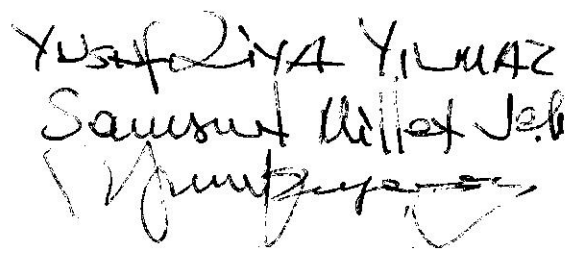 YUSUF ZİYA YILMAZ
Samsun Millet Vek